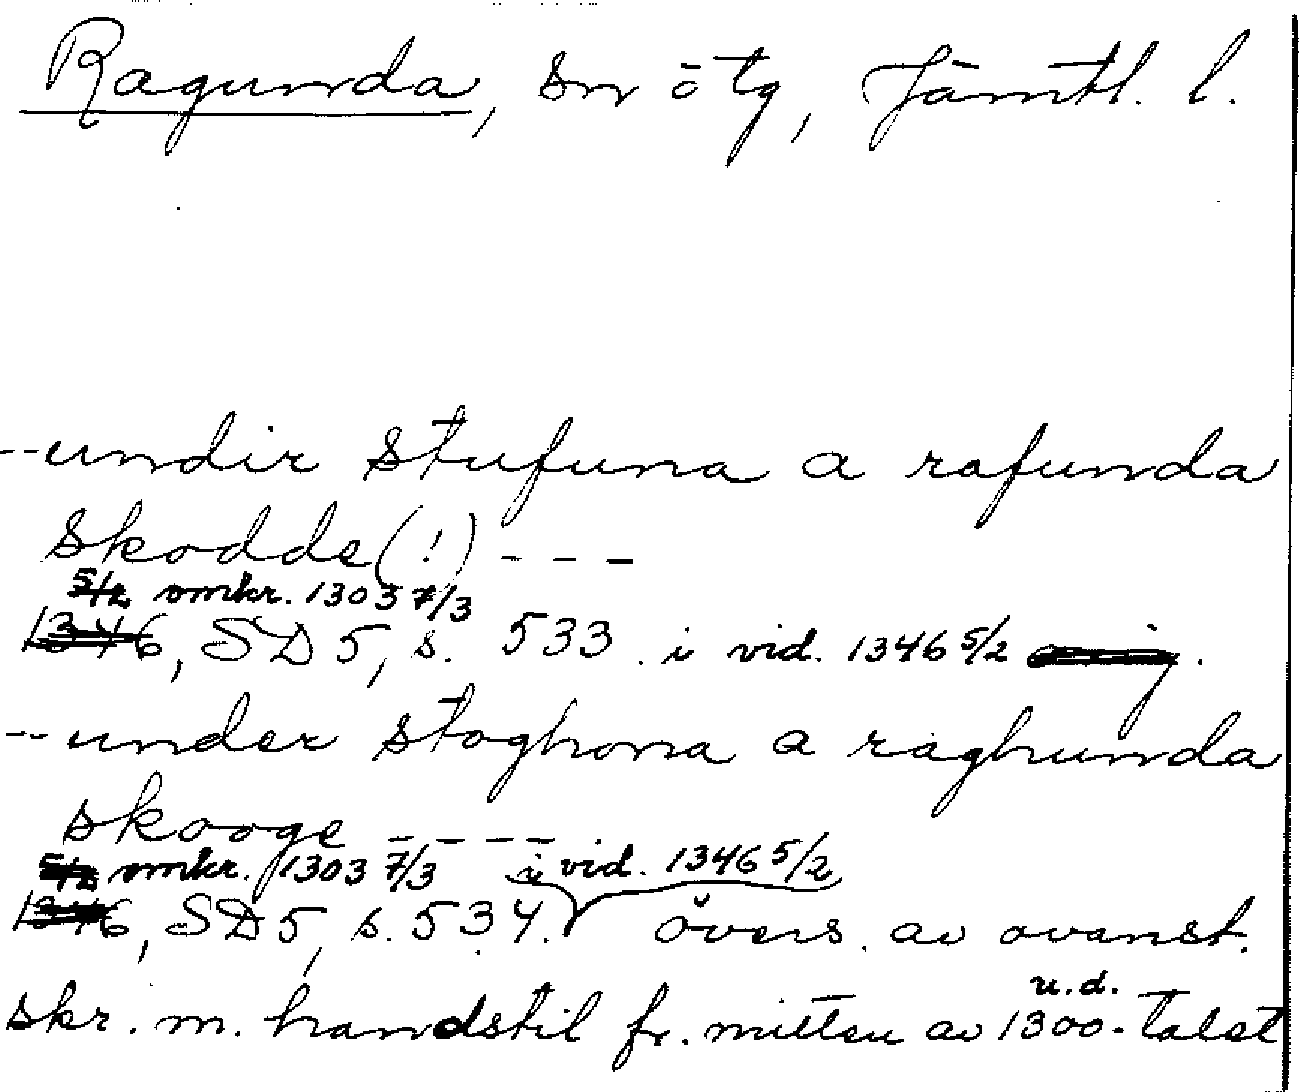 Ragunda, sn ö tg, Jämtl. l.
--undir stufuna a rafunda
skodde(!) - - -
5/2 omkr. 1303 7/3
1346, SD 5, s. 533. i vid. 1346 5/2
--under stoghona a raghunda
skooge - - - -
5/2 omkr. 1303 7/3 i vid. 1346 5/2
1346, SD 5, s. 534. övers. av ovanst.
u.d.
skr. m. handstil fr. mitten av 1300-talet